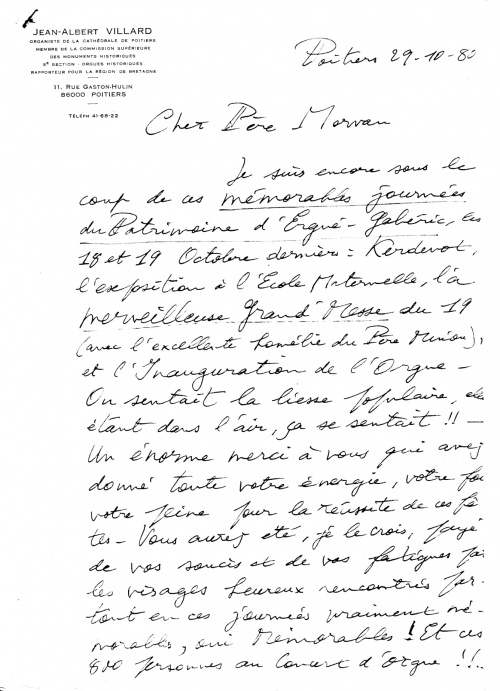 JEAN-ALBERT VILLARD
ORGANISTE DE LA CATHÉDRALE DE POITIERS
MEMBRE DE LA COMMISSION SUPÉRIEURE
DES MONUMENTS HISTORIQUES
5e SECTION : ORGUES HISTORIQUES
RAPPORTEUR POUR LA RÉGION DE BRETAGNE
11, RUE GASTON-HULIN
86000 POITIERS
TÉLÉPH 41-68-22
Poitiers 29-10-80
Cher Père Morvan
Je suis encore sous le
coup de ces mémorables journées
du Patrimoine d'Ergué-Gabéric, les
18 et 19 Octobre derniers : Kerdevot,
l'exposition à l'Ecole Maternelle, la
merveilleuse Grand'Messe du 19
(avec l'excellente homélie du Père Miniou),
et l'Inauguration de l'Orgue -
On sentait la liesse populaire, elle
étant dans l'air, ça se sentait !! -
Un énorme merci à vous qui avez
donné toute votre énergie, votre foi
votre peine pour la réussite de ces fê
tes - Vous aurez été, je le crois, payé
de vos soucis et de vos fatigues par
les visages heureux rencontrés par-
tout en ces journées vraiment mé-
morables, oui Mémorables ! Et ces
800 personnes au Concert d'Orgue !!..